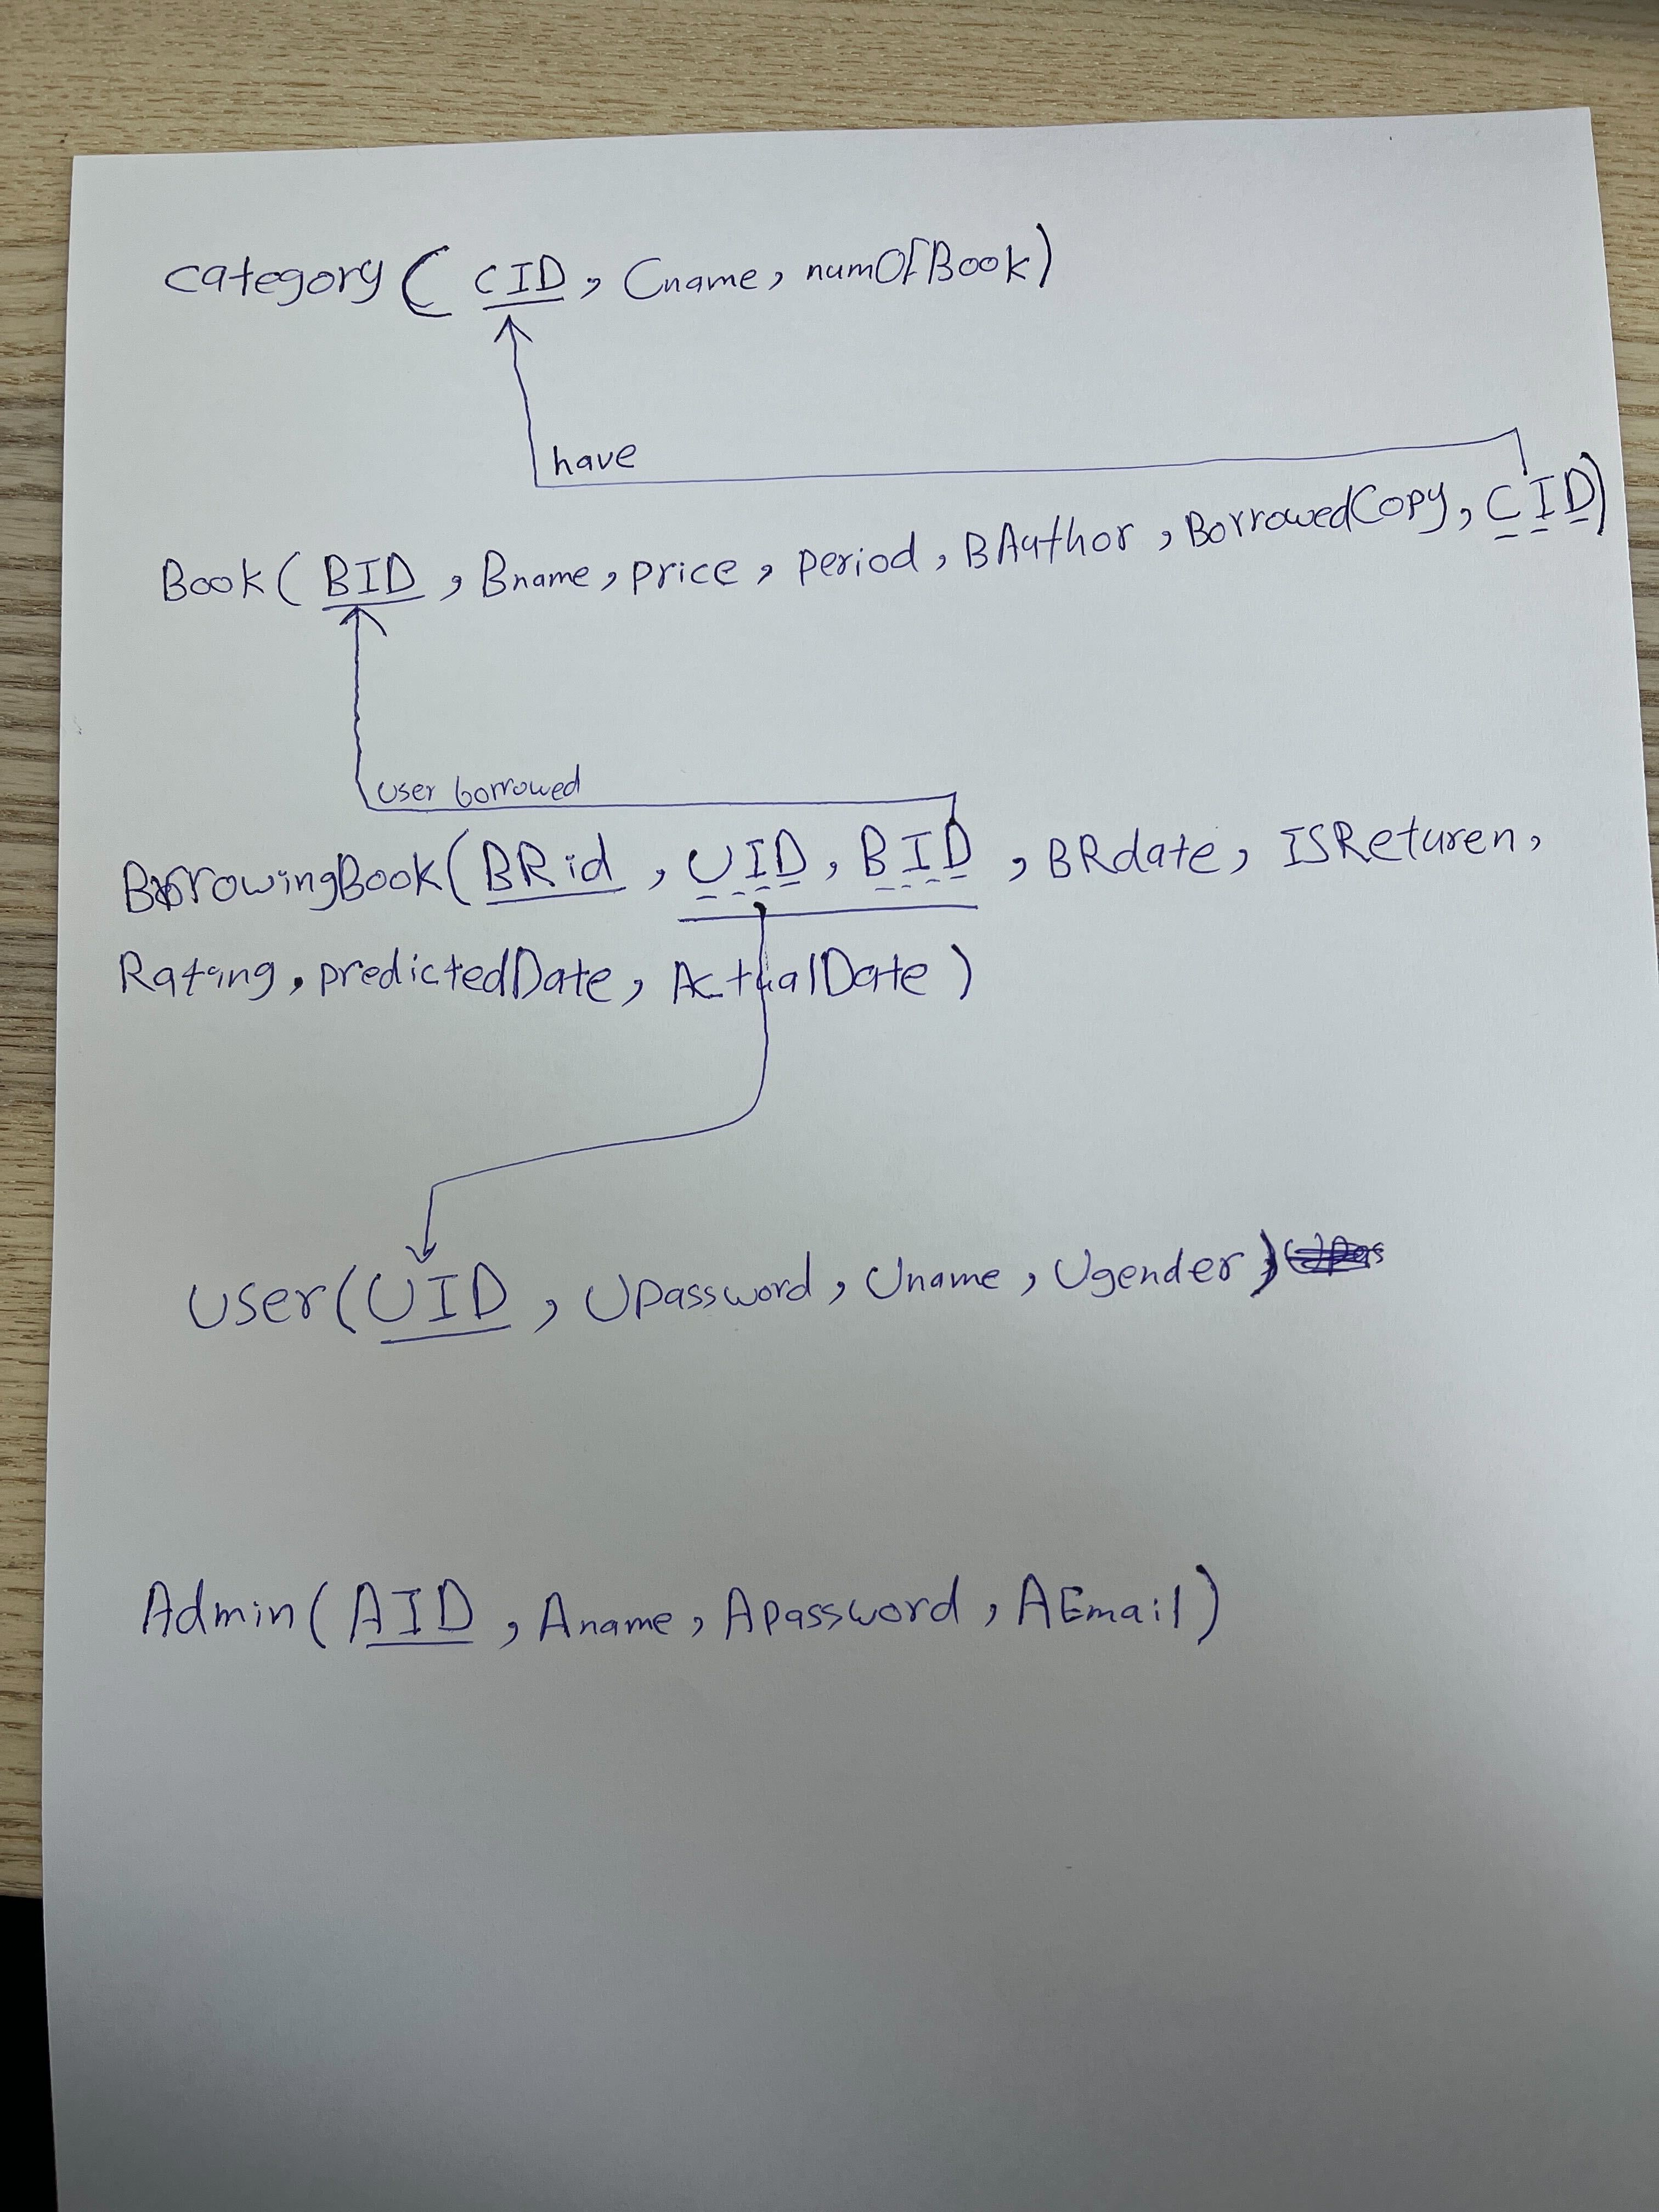 category ( CID, Cname, numOfBook)
have
Book ( BID, Bname, price, period, BAuthor, BorrowedCopy, CID)
User borrowed
BorrowingBook( BRid, UID, BID, BRdate, ISReturen,
Rating, predictedDate, ActualDate )
User( UID, UPassword, Uname, Ugender )
Admin( AID, Aname, Apassword, AEmail)